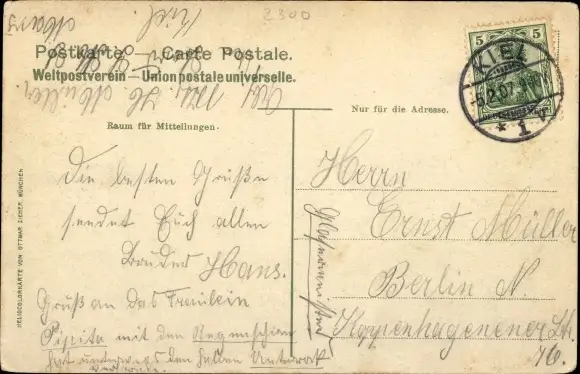 2300
Kiel.
Postkarte. — Carte Postale.
Weltpostverein — Union postale universelle.
Müller
Nur für die Adresse.
Raum für Mitteilungen.
5 5
KIEL
5.2.07
* 1 *
Die besten Grüße
sendet Euch allen
Bruder Hans.
Gruß an das Fräulein
Pipita mit dem Regenschirm
hat unterwegs den halben Unterrock
Herrn
Ernst Müller
Berlin N.
Koppenhagenener Str.
76.
HELIOCOLORKARTE VON OTTMAR ZIEHER, MÜNCHEN